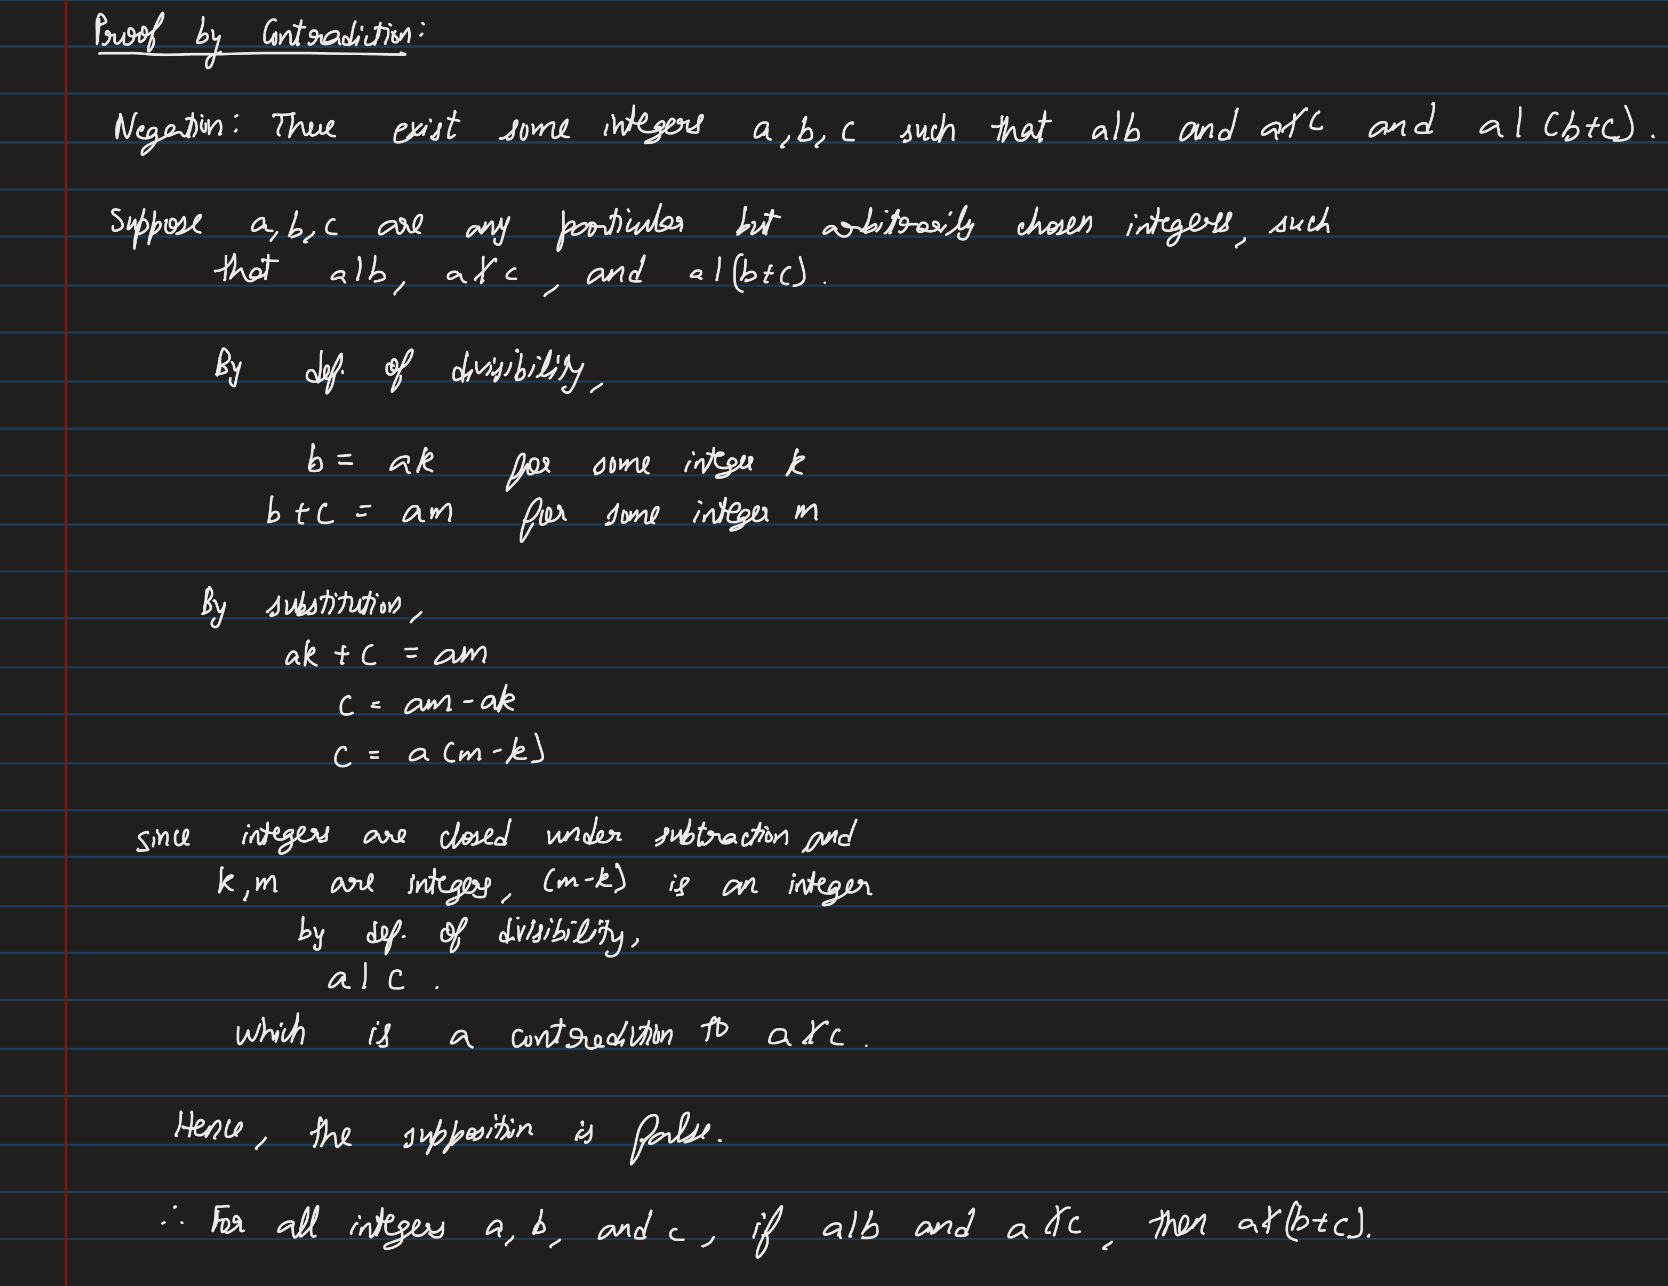 Proof by Contradiction:
Negation: There exist some integers a, b, c such that a|b and a∤c and a|(b+c).
Suppose a, b, c are any particular but arbitrarily chosen integers, such
that a|b, a∤c, and a|(b+c).
By def. of divisibility,
b = ak for some integer k
b+c = am for some integer m
By substitution,
ak + c = am
c = am - ak
c = a(m-k)
since integers are closed under subtraction and
k, m are integers, (m-k) is an integer
by def. of divisibility,
a|c.
which is a contradiction to a∤c.
Hence, the supposition is false.
∴ For all integers a, b, and c, if a|b and a∤c, then a∤(b+c).